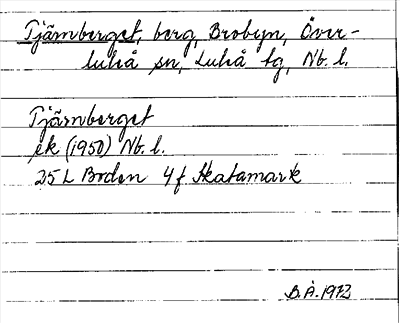 Tjärnberget, berg, Brobyn, Över-
luleå sn, Luleå tg, Nb. l.
Tjärnberget
ek (1950) Nb. l.
25 L Boden 4 f Skatamark
B.Å. 1973